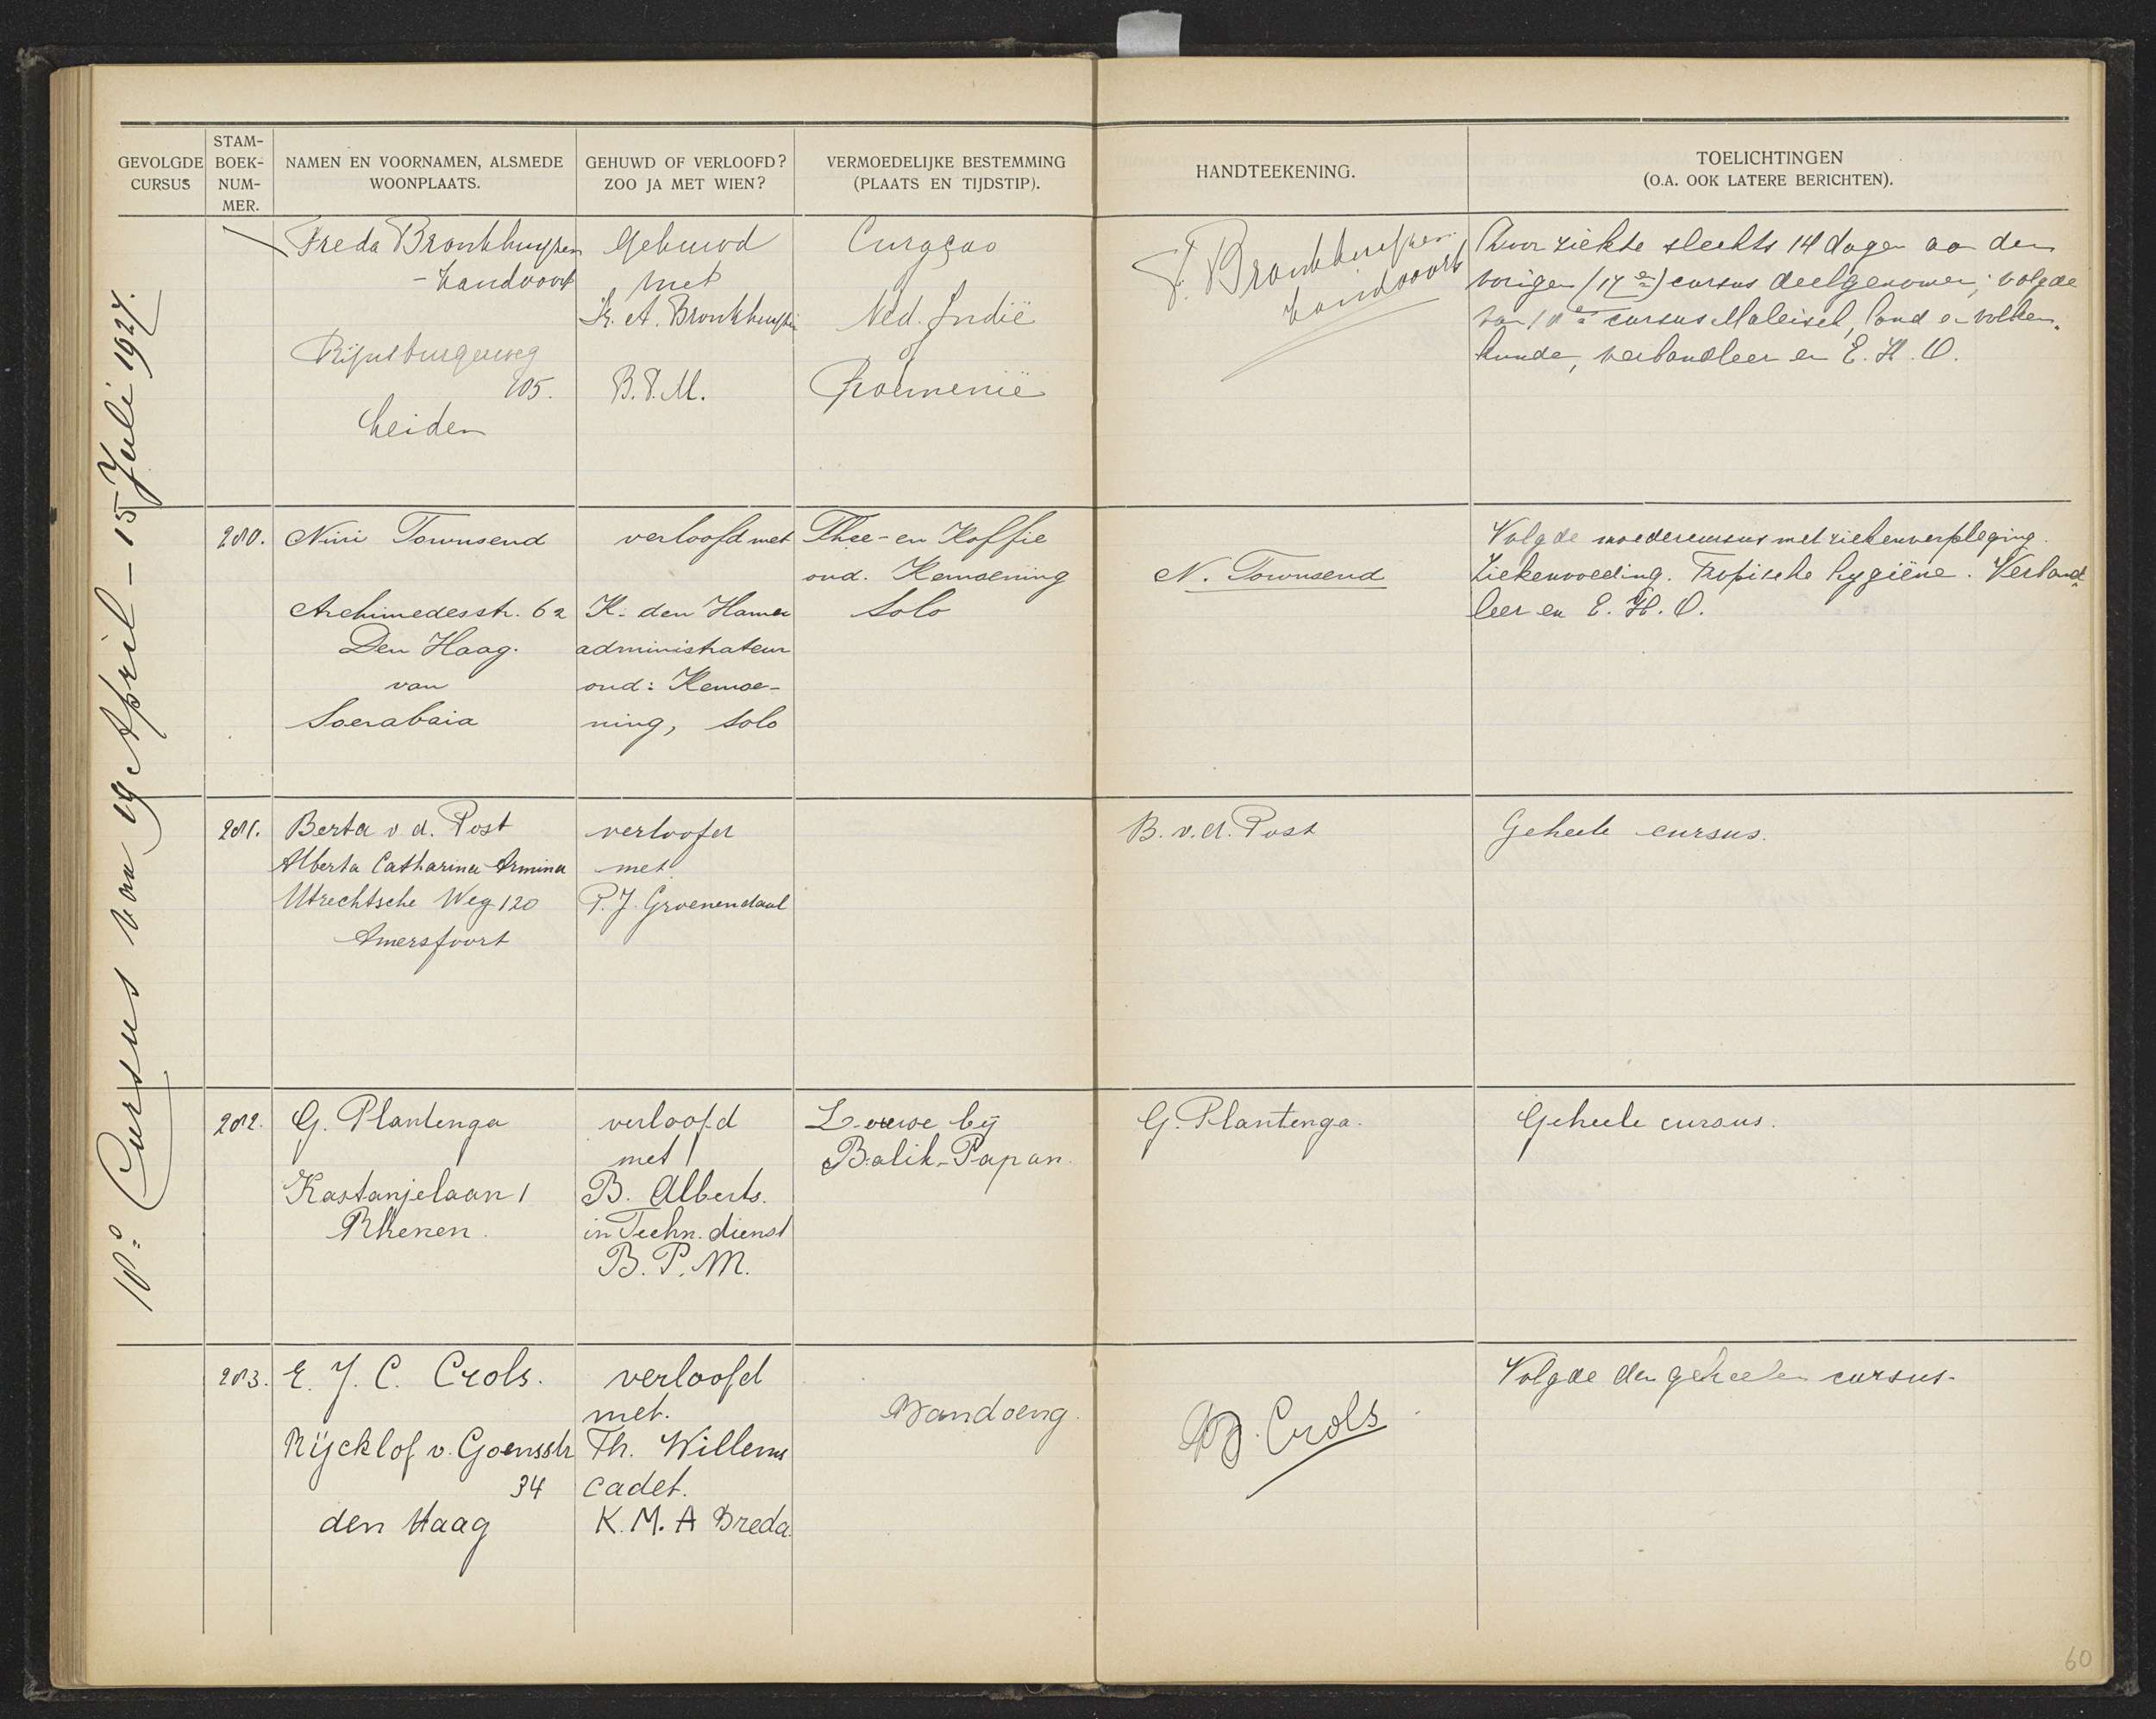 GEVOLGDE CURSUS
STAM-BOEK-NUM-MER.
NAMEN EN VOORNAMEN, ALSMEDE WOONPLAATS.
GEHUWD OF VERLOOFD? ZOO JA MET WIEN?
VERMOEDELIJKE BESTEMMING (PLAATS EN TIJDSTIP).
HANDTEEKENING.
TOELICHTINGEN (O.A. OOK LATERE BERICHTEN).
18e Cursus van 19 April - 15 Juli 1927.
Freda Bronkhuyzen
- Zandvoort
Rijnsburgerweg
105.
Leiden
Gehuwd
met
A. Bronkhuyzen
B.P.M.
Curaçao
of
Ned. Indië
of
Roemenië
F. Bronkhuyzen
Zandvoort
Door ziekte slechts 14 dagen aan den
vorigen (17e) cursus deelgenomen; volgde
van 18e cursus Maleisch, land en volken-
kunde, verbandleer en E. H. O.
280.
Nini Townsend
Archimedesstr. 62
Den Haag.
van
Soerabaia
verloofd met
K. den Hamer
administrateur
ond: Kemoe-
ning, Solo
Thee- en Koffie
ond. Kemoening
Solo
N. Townsend
Volgde moedercursus met ziekenverpleging.
Ziekenvoeding. Tropische hygiëne. Verband
leer en E. H. O.
281.
Berta v d. Post
Alberta Catharina Armina
Utrechtsche Weg 120
Amersfoort
verloofd
met
P. J. Groenendaal
B. v. d. Post
Geheele cursus.
282.
G. Plantenga
Kastanjelaan 1
Rhenen.
verloofd
met
B. Alberts.
in Techn. dienst
B. P. M.
Louise bij
Balik-Papan.
G. Plantenga.
Geheele cursus.
283.
E. J. C. Crols.
Rijcklof v. Goensstr
34
den Haag
verloofd
met.
Th. Willems
cadet.
K. M. A Breda.
Bandoeng.
B. Crols
Volgde den geheelen cursus.
60